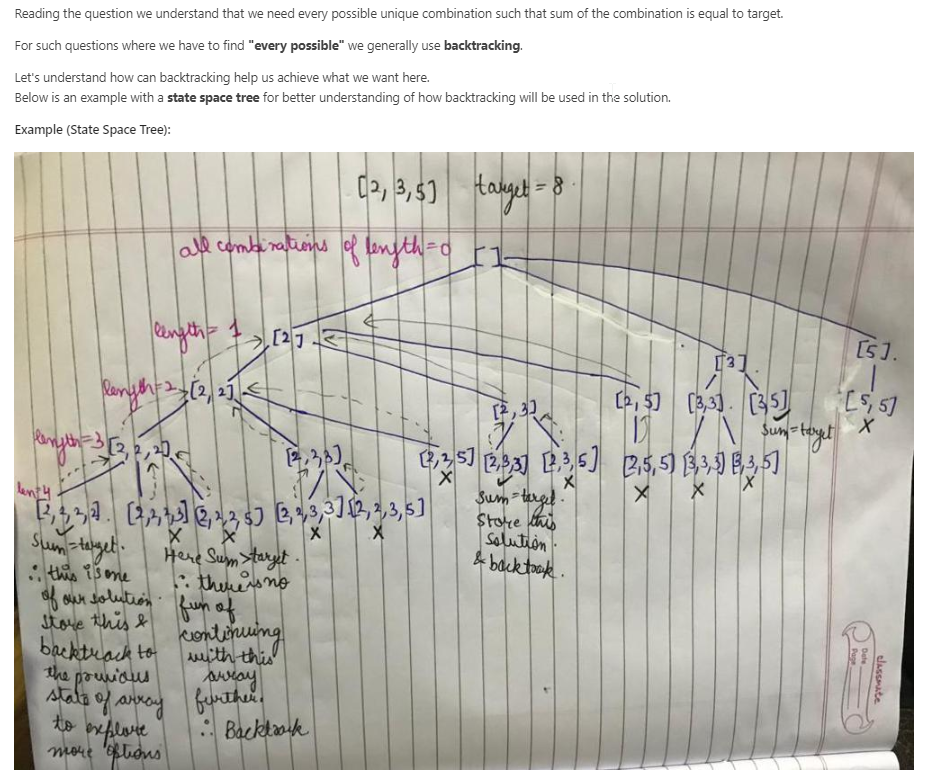 Reading the question we understand that we need every possible unique combination such that sum of the combination is equal to target.
For such questions where we have to find "every possible" we generally use backtracking.
Let's understand how can backtracking help us achieve what we want here.
Below is an example with a state space tree for better understanding of how backtracking will be used in the solution.
Example (State Space Tree):
[2, 3, 5] target = 8
all combinations of length=0 [ ]
length= 1 [2] [3] [5].
length=2 [2, 2] [2, 3] [2, 5] [3,3]. [3,5] [5, 5]
sum=target X
length=3 [2, 2, 2] [2,2,3] [2,2,5] [2,3,3] [2,3,5] [2,5,5] [3,3,3] [3,3,5]
X X X X X
len=4
[2,2,2,2]. [2,2,2,3] [2,2,2,5] [2,2,3,3] [2,2,3,5]
X X X X
Sum=target.
∴ this is one
of our solution.
Store this &
backtrack to
the previous
state of array
to explore
more options
Here Sum>target.
∴ there is no
fun of
continuing
with this
array
further.
∴ Backtrack
Sum=target.
Store this
Solution.
& backtrack.
classmate
Date
Page